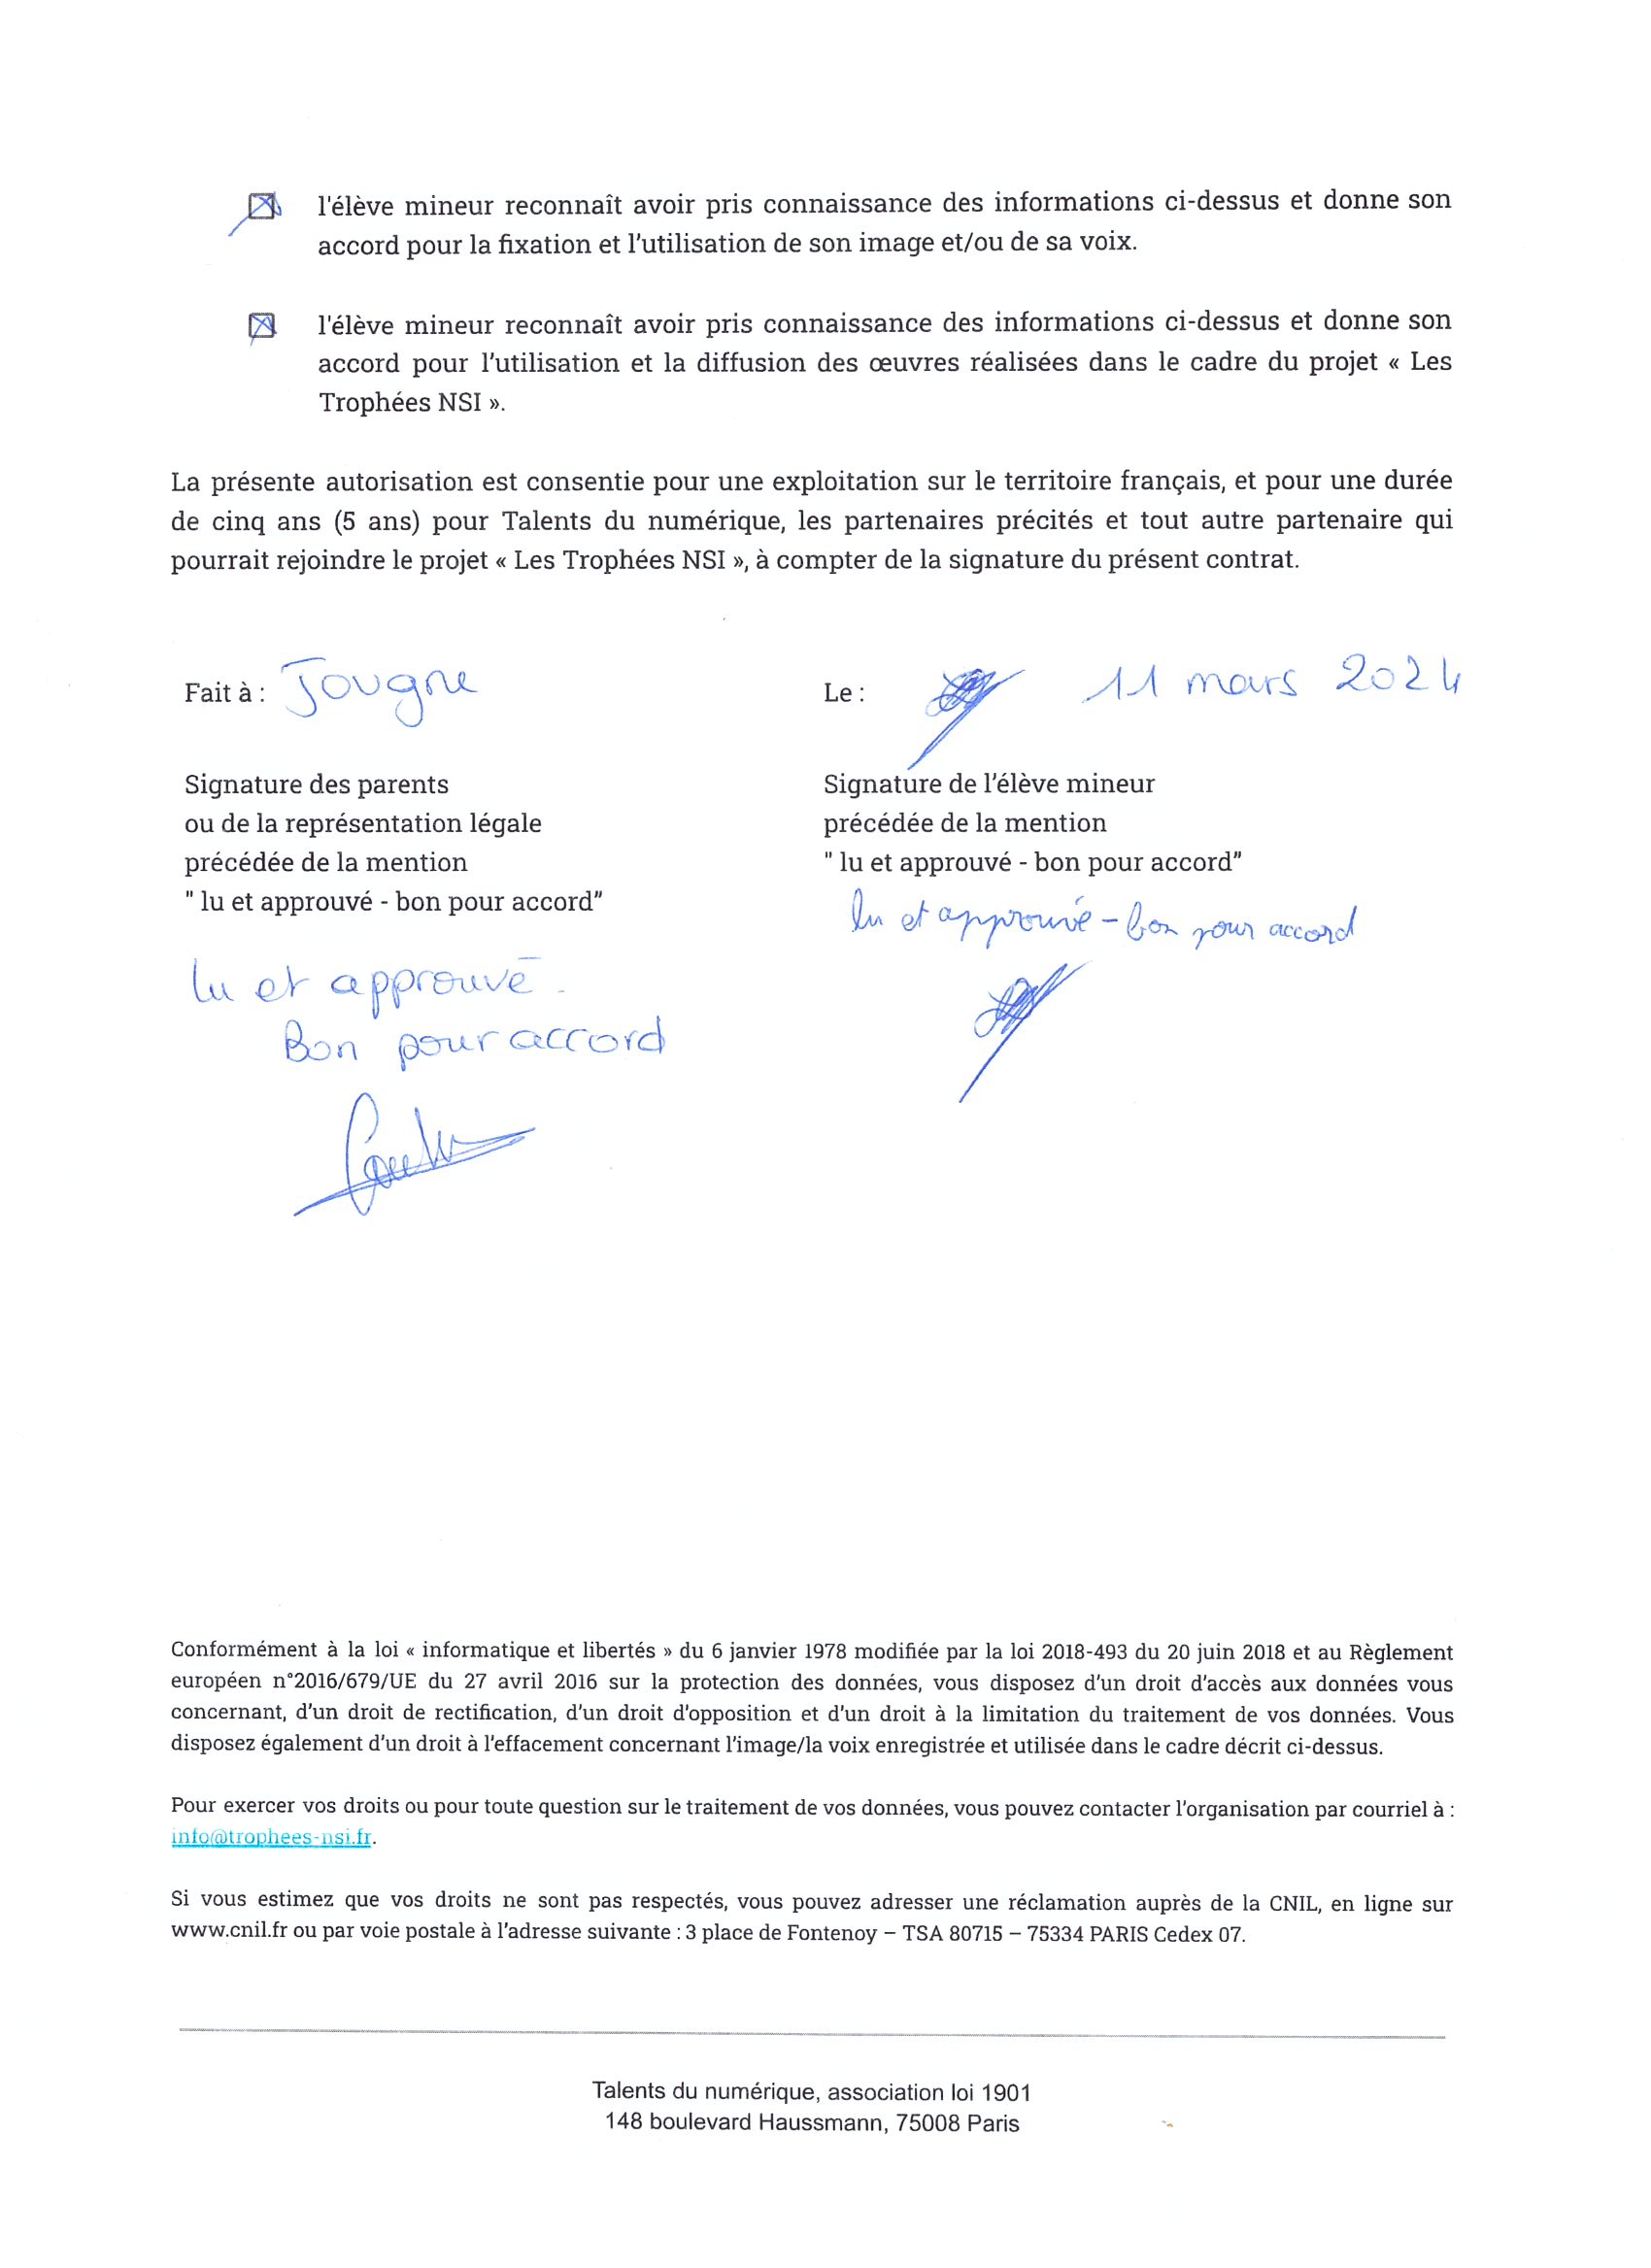 l'élève mineur reconnaît avoir pris connaissance des informations ci-dessus et donne son
accord pour la fixation et l'utilisation de son image et/ou de sa voix.
l'élève mineur reconnaît avoir pris connaissance des informations ci-dessus et donne son
accord pour l'utilisation et la diffusion des œuvres réalisées dans le cadre du projet « Les
Trophées NSI ».
La présente autorisation est consentie pour une exploitation sur le territoire français, et pour une durée
de cinq ans (5 ans) pour Talents du numérique, les partenaires précités et tout autre partenaire qui
pourrait rejoindre le projet « Les Trophées NSI », à compter de la signature du présent contrat.
Fait à : Jougne
Le : 11 mars 2024
Signature des parents
ou de la représentation légale
précédée de la mention
" lu et approuvé - bon pour accord"
lu et approuvé -
Bon pour accord
Signature de l'élève mineur
précédée de la mention
" lu et approuvé - bon pour accord"
lu et approuvé - bon pour accord
Conformément à la loi « informatique et libertés » du 6 janvier 1978 modifiée par la loi 2018-493 du 20 juin 2018 et au Règlement
européen n°2016/679/UE du 27 avril 2016 sur la protection des données, vous disposez d'un droit d'accès aux données vous
concernant, d'un droit de rectification, d'un droit d'opposition et d'un droit à la limitation du traitement de vos données. Vous
disposez également d'un droit à l'effacement concernant l'image/la voix enregistrée et utilisée dans le cadre décrit ci-dessus.
Pour exercer vos droits ou pour toute question sur le traitement de vos données, vous pouvez contacter l'organisation par courriel à :
info@trophees-nsi.fr.
Si vous estimez que vos droits ne sont pas respectés, vous pouvez adresser une réclamation auprès de la CNIL, en ligne sur
www.cnil.fr ou par voie postale à l'adresse suivante : 3 place de Fontenoy – TSA 80715 – 75334 PARIS Cedex 07.
Talents du numérique, association loi 1901
148 boulevard Haussmann, 75008 Paris